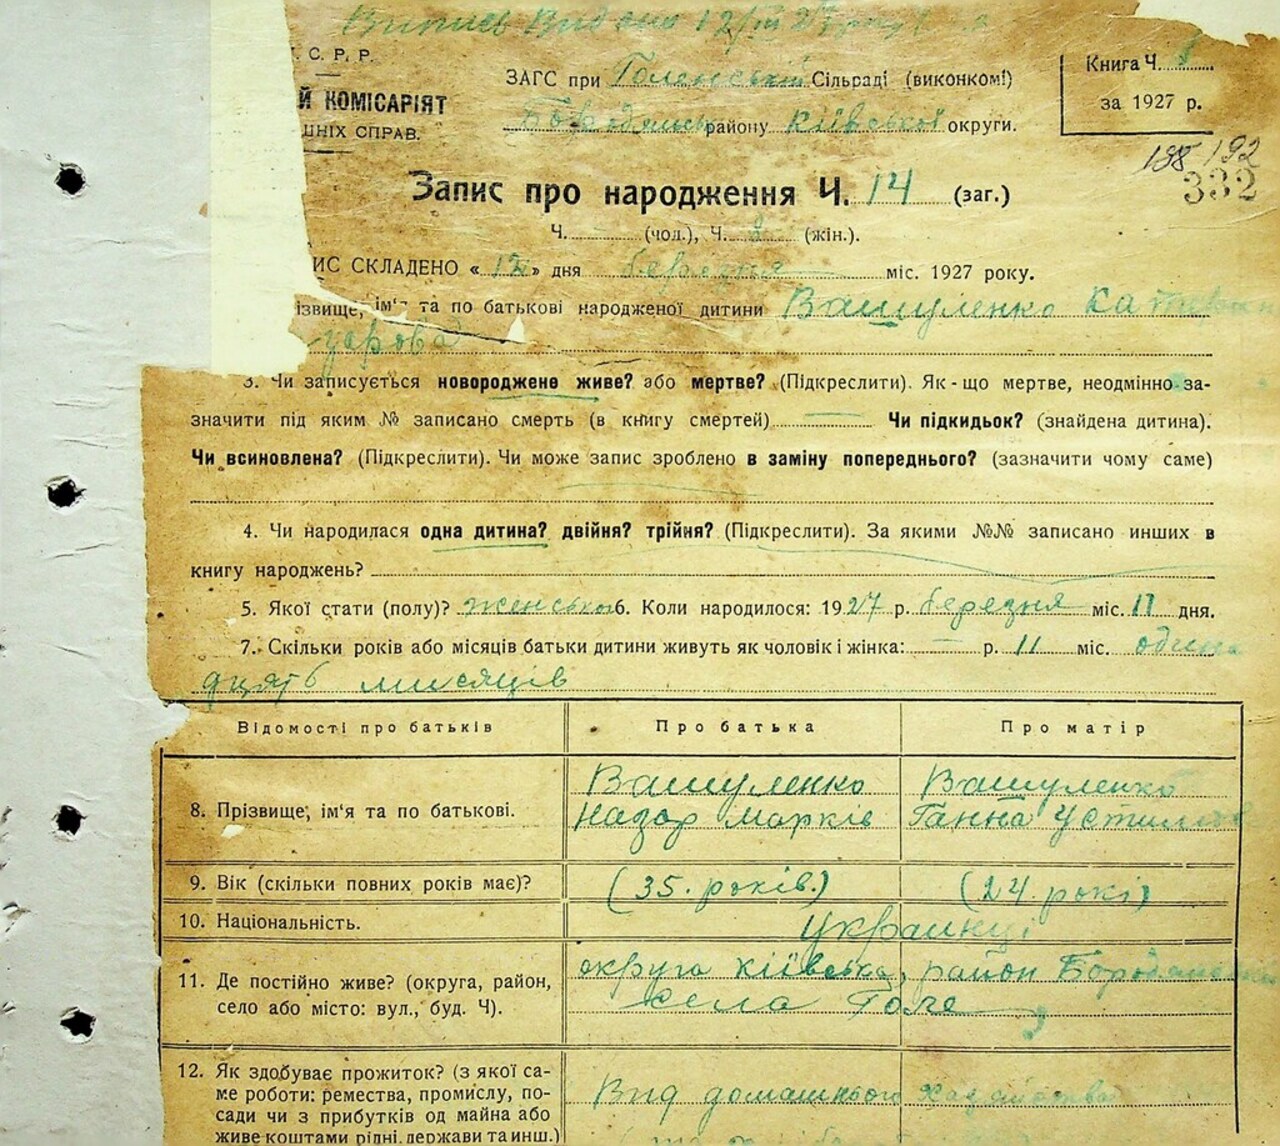 Випись Видана 12/III 27 року
С. Р. Р.
Й КОМІСАРІЯТ
ШНІХ СПРАВ.
ЗАГС при Голенській Сільраді (виконкомі)
Бородянськ району Київської округи.
Книга Ч.
за 1927 р.
188 192
332
Запис про народження Ч. 14 (заг.)
Ч. (чол.), Ч. (жін.).
ИС СКЛАДЕНО « » дня березня міс. 1927 року.
ізвище, ім'я та по батькові народженої дитини Вашуленко Катерин
3. Чи записується новороджене живе? або мертве? (Підкреслити). Як-що мертве, неодмінно за-
значити під яким № записано смерть (в книгу смертей) Чи підкидьок? (знайдена дитина).
Чи всиновлена? (Підкреслити). Чи може запис зроблено в заміну попереднього? (зазначити чому саме)
4. Чи народилася одна дитина? двійня? трійня? (Підкреслити). За якими №№ записано инших в
книгу народжень?
5. Якої стати (полу)? женської 6. Коли народилося: 1927 р. березня міс. 11 дня.
7. Скільки років або місяців батьки дитини живуть як чоловік і жінка: — р. 11 міс. одина
дцять мисяців
Відомості про батьків Про батька Про матір
8. Прізвище, ім'я та по батькові. Вашуленко Назар Марків Вашуленко Ганна
9. Вік (скільки повних років має)? (35. років.) (24 рокі)
10. Національність. Украинці
11. Де постійно живе? (округа, район,
село або місто: вул., буд. Ч).
округа київська, район Бородянський
села Голе
12. Як здобуває прожиток? (з якої са-
ме роботи: ремества, промислу, по-
сади чи з прибутків од майна або
живе коштами рідні, держави та инш.)
Вид домашнього